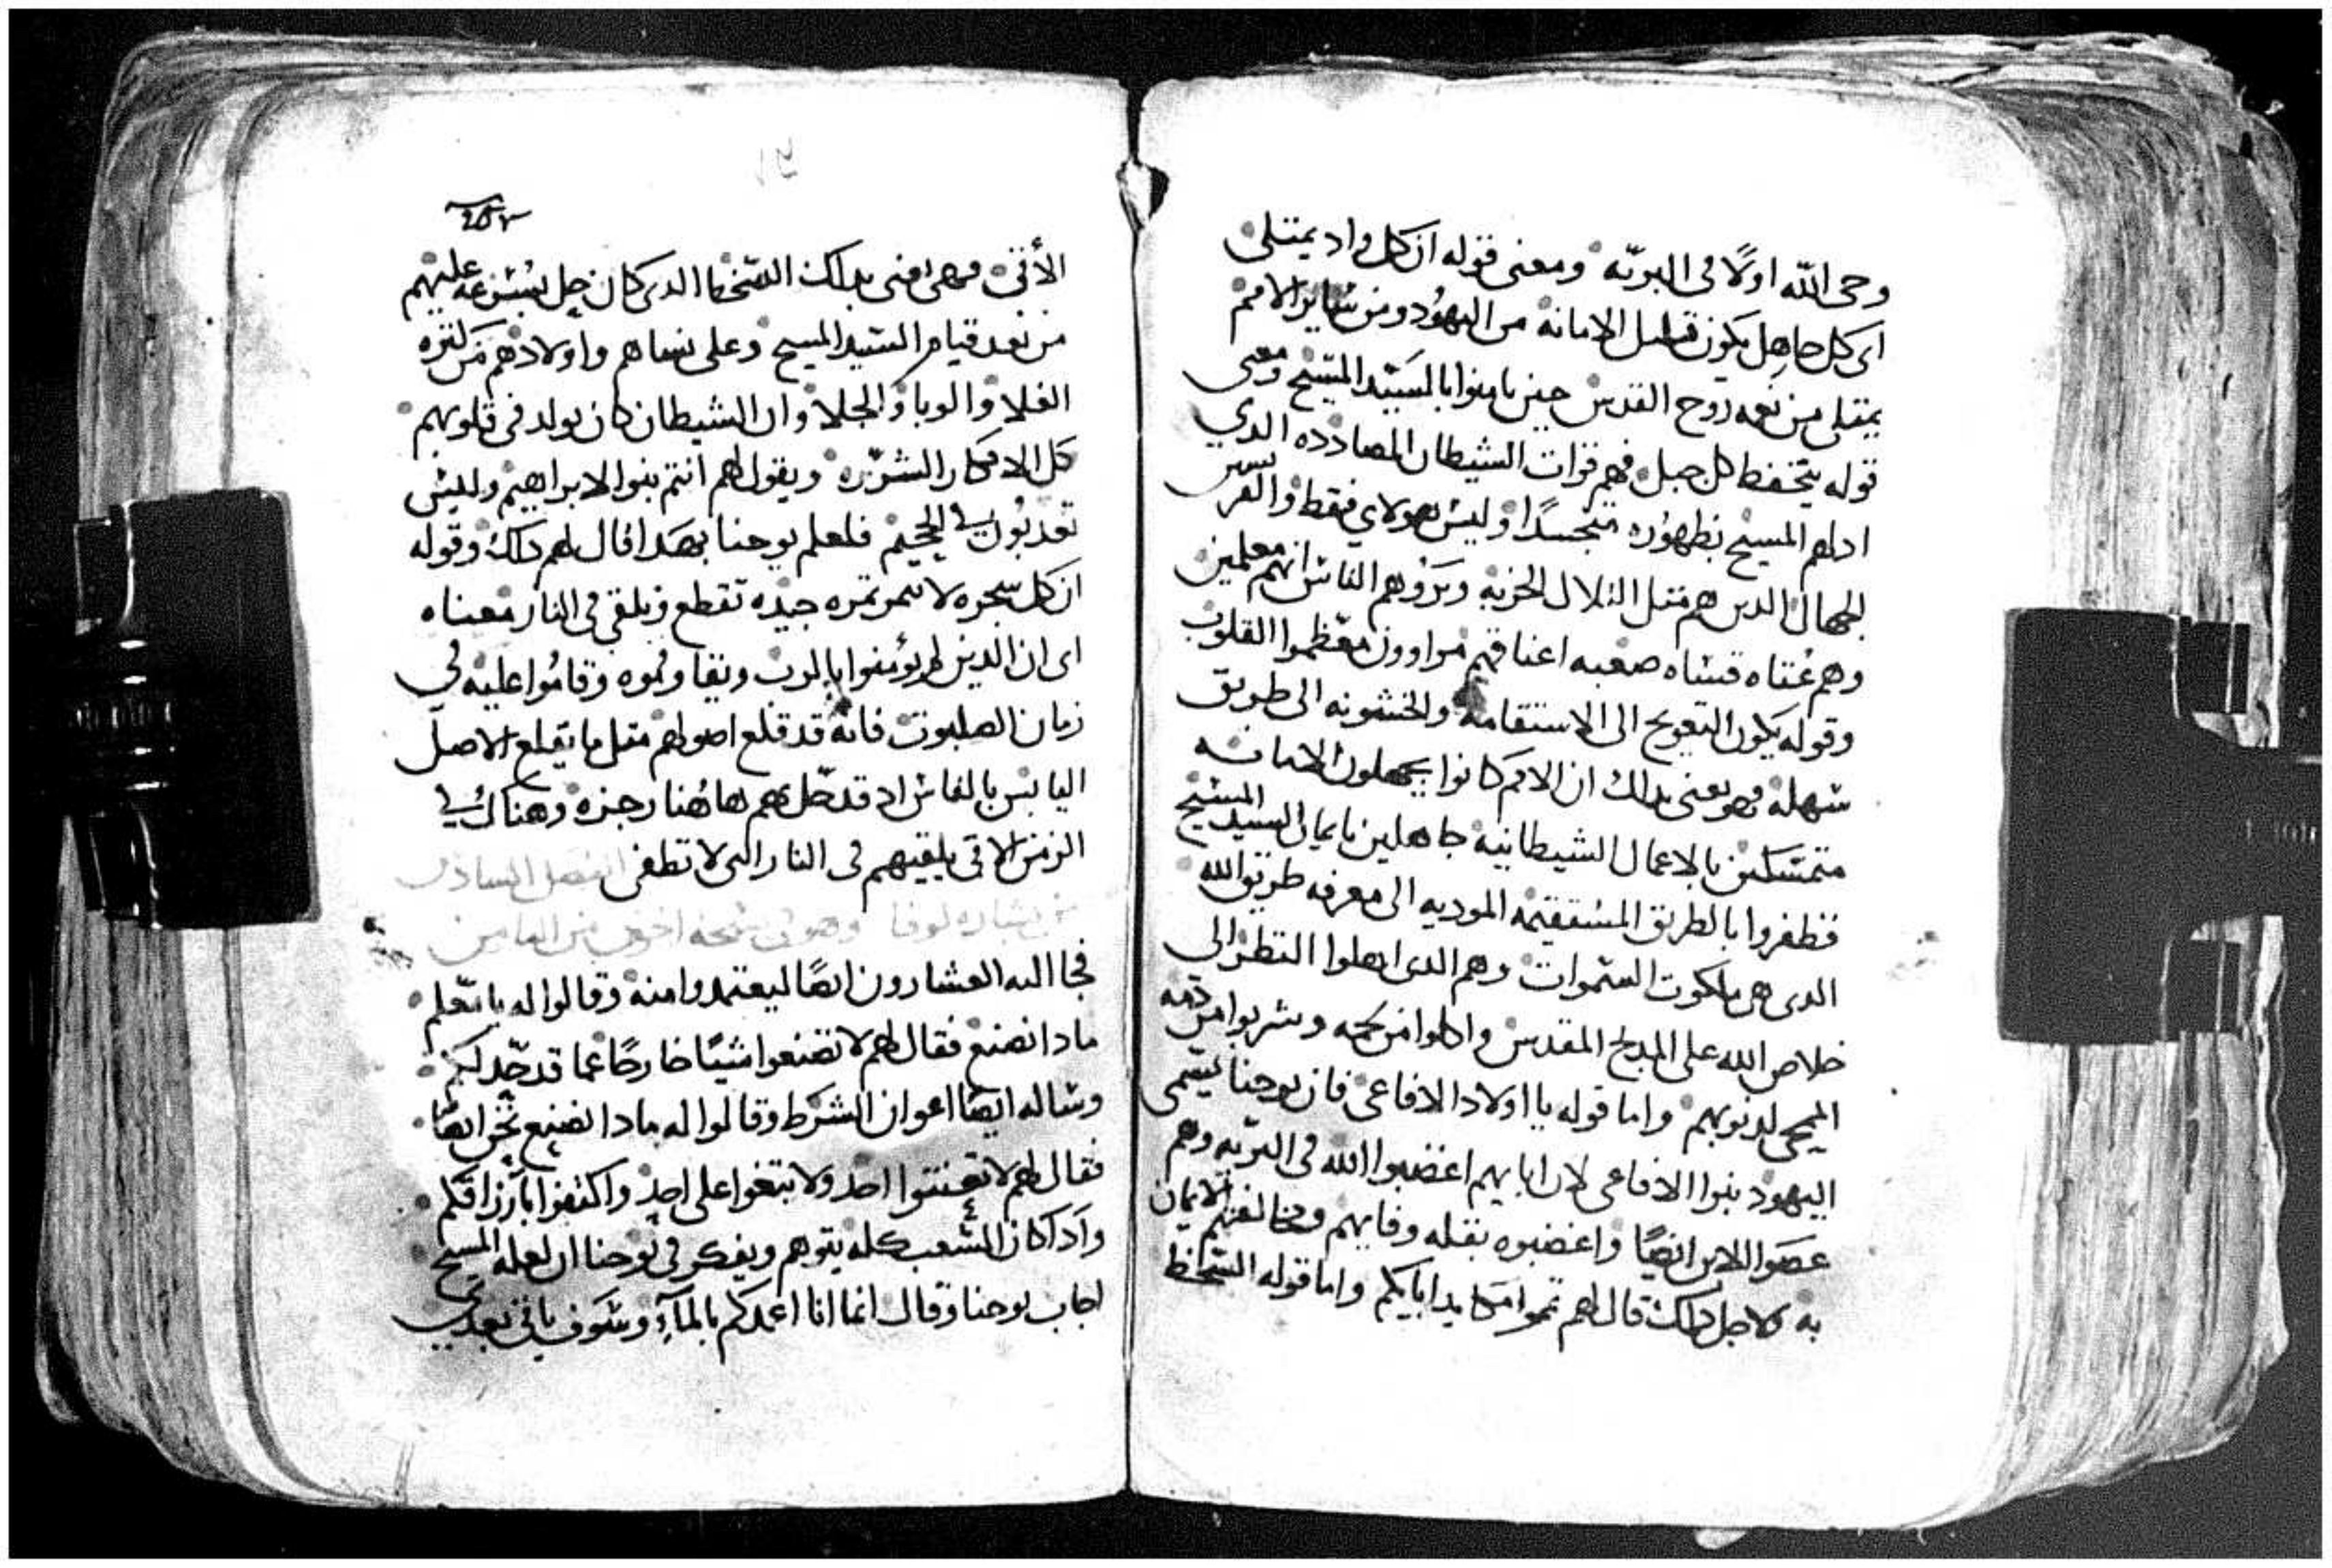 وحى الله اولًا فى البريّه ومعنى قوله ان كل واد يمتلى
اى كل جاهل يكون قليل الامانه من اليهود ومن ساير الامم
يمتلى من نعمه روح القدس حين يامنوا بالسيد المسيح ومعنى
قوله يتخفط كل جبل فهم قوات الشيطان المصادده الدي
ادلهم المسيح بظهوره متجسدًا وليس هولاي فقط والغر
الجهال الدين هم متل التلال الخربه ويروهم الناس انهم معلمين
وهم عتاه قساه صعبه اعناقهم مراوون معظموا القلوب
وقوله يكون التعويج الى الاستقامه والخشونه الى طريق
سهله فهو يعنى بدلك ان الامم كانوا يجهلون الامانه
متمسكين بالاعمال الشيطانيه جاهلين بايمان السيد المسيح
فظفروا بالطريق المستقيمه الموديه الى معرفه طريق الله
الدى هى ملكوت السموات وهم الدى اهلوا النظر الى
خلاص الله على المدبح المقدس واكلوا من لحمه وشربوا من دمه
المحيى لدنوبهم واما قوله يا اولاد الافاعى فان يوحنا يسمى
اليهود بنوا الافاعى لان ابايهم اغضبوا الله فى البريه وهم
عصوا الابن ايضًا واغضبوه بقله وفايهم ومخالفتهم الايمان
به لاجل دلك قال لهم تموا مكايد ابايكم واما قوله السخط
الأتى فهى يعنى بدلك السخط الدى كان حل بسرعه عليهم
من بعد قيام السيد المسيح وعلى نساهم واولادهم من كتره
الغلا والوبا والجلا وان الشيطان كان يولد فى قلوبهم
كل الافكار الشريره ويقول لهم انتم بنوا لابراهيم وليس
تعدبون في الجحيم فلعلم يوحنا بهدا قال لهم دلك وقوله
ان كل سجره لا تتمر تمره جيده تقطع وتلقى فى النار معناه
اى ان الدين لم يؤمنوا بالرب ويقاوموه وقاموا عليه في
زمان الصلبوت فانه قد قلع اصولهم متل ما يقلع الاصل
اليابس بالفاس اد قد حل بهم هاهنا رجزه وهناك في
الزمن الاتى يلقيهم فى النار التى لا تطفى الفصل السادس
من بشاره لوقا وهو فى نسخه اخرى من التامن
فجا اليه العشارون ايضًا ليعتمدوا منه وقالوا له يا معلم
مادا نصنع فقال لهم لا تصنعوا شيًا خارجًا عما قد حّد لكم
وساله ايضًا اعوان الشرط وقالوا له مادا نصنع نحن ايضًا
فقال لهم لا تعنتوا احد ولا تبتغوا على احد واكتفوا بأرزاقكم
واد كان الشعب كله يتوهم ويفكر فى يوحنا ان لعله المسيح
اجاب يوحنا وقال انما انا اعمدكم بالمآء وسوف ياتى بعدي